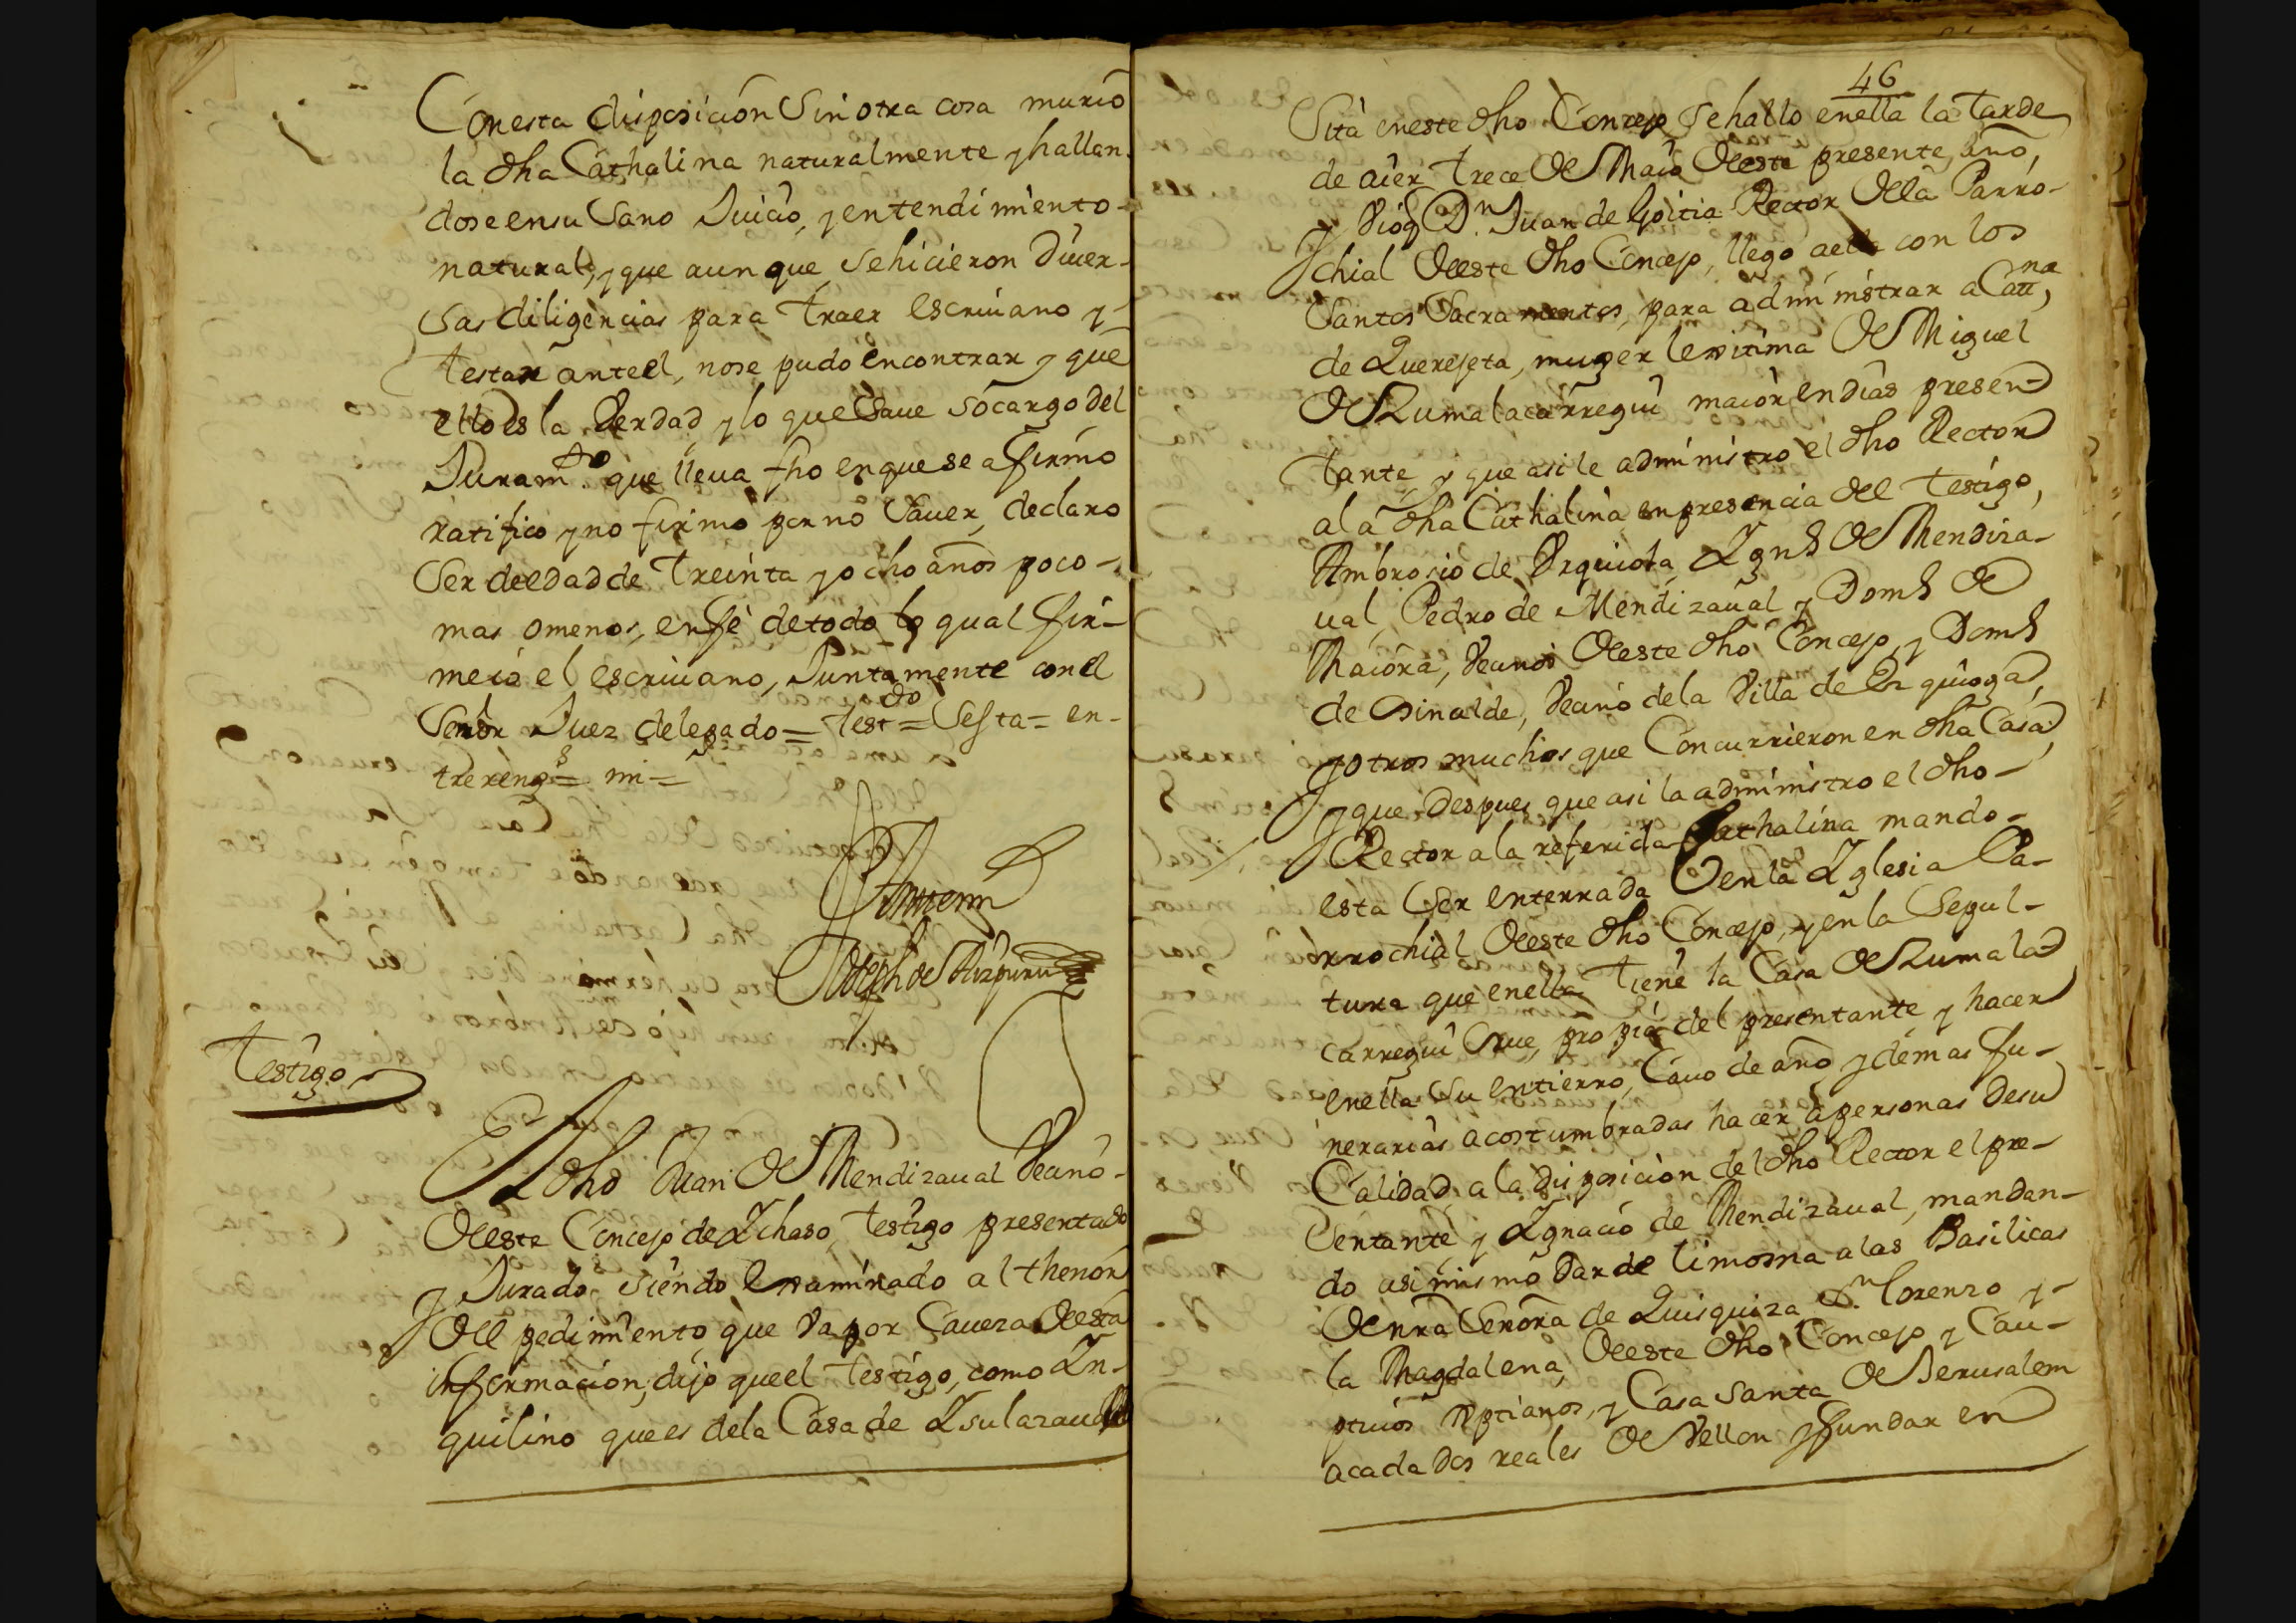 Con esta disposicion Sin otra cosa murio
la dha Cathalina naturalmente y hallan-
dose en su Sano Juicio, y entendimiento-
natural, y que aunque Sehicieron Diver-
sas diligencias para traer escriuano y-
testar anteel, nose pudo encontrar y que
ello es la Verdad y lo que Saue Socargo del
Juramto que lleua fho en que se afirmo
ratifico y no firmo por no Sauer, declaro
Ser de edad de treinta y ocho años poco-
mas omenos, en fè de todo lo qual fir-
me io el escriuano, Juntamente con el
Señor Juez delegado = testdo = Sesta = en-
trerengs = mi =
Ante mi
Joseph de Aizpuru
Testigo
El dho Juan de Mendizaual Veano-
de este Concejo de Ychaso, testigo presentado
y Jurado, siendo examinado al thenor
del pedimiento que Va por Caueza de esta
informacion, dijo que el testigo, como In-
quilino que es dela Casa de Ysulazaual
46
Sita en este dho Concejo Se hallo en ella la tarde
de aier trece de Maio de este presente año,
y Vió q Dn Juan de Goitia Rector de la Parro-
chial de este dho Concejo, llego a ella con los
Santos Sacramentos, para administrar a Catna
de Querejeta, muger lexitima de Miguel
de Zumalacarregui maior en dias presen-
tante, y que asi le administro el dho Rector
ala dha Cathalina en presencia del testigo,
Ambrosio de Vrquiola, Ygns de Mendiza-
ual, Pedro de Mendizaual y Doms de
Maiora, Veanos de este dho Concejo, y Doms
de Oinalde, Veano dela Villa de Ezquioga,
y otros muchos que Concurrieron en dha Casa,
y que despues que asi la administro el dho-
Rector a la referida Cathalina mando-
esta Ser enterrada en la Yglesia Pa-
rrochial de este dho Concejo, y en la Sepul-
tura que en ella tiene la Casa de Zumala-
carregui propia del presentante y hacer
en ella Su entierro, Cauo de año y demas fu-
nerarias acostumbradas hacer a personas desu
Calidad, a la disposicion del dho Rector el pre-
Sentante y Ygnacio de Mendizaual, mandan-
do asi mismo dar de limosna a las Basilicas
de nra Señora de Quisquiza Sn Lorenzo y-
la Magdalena, de este dho Concejo y Cau-
ptiuos xptianos, y Casa Santa de Jerusalem
acada dos reales de Vellon y fundar en